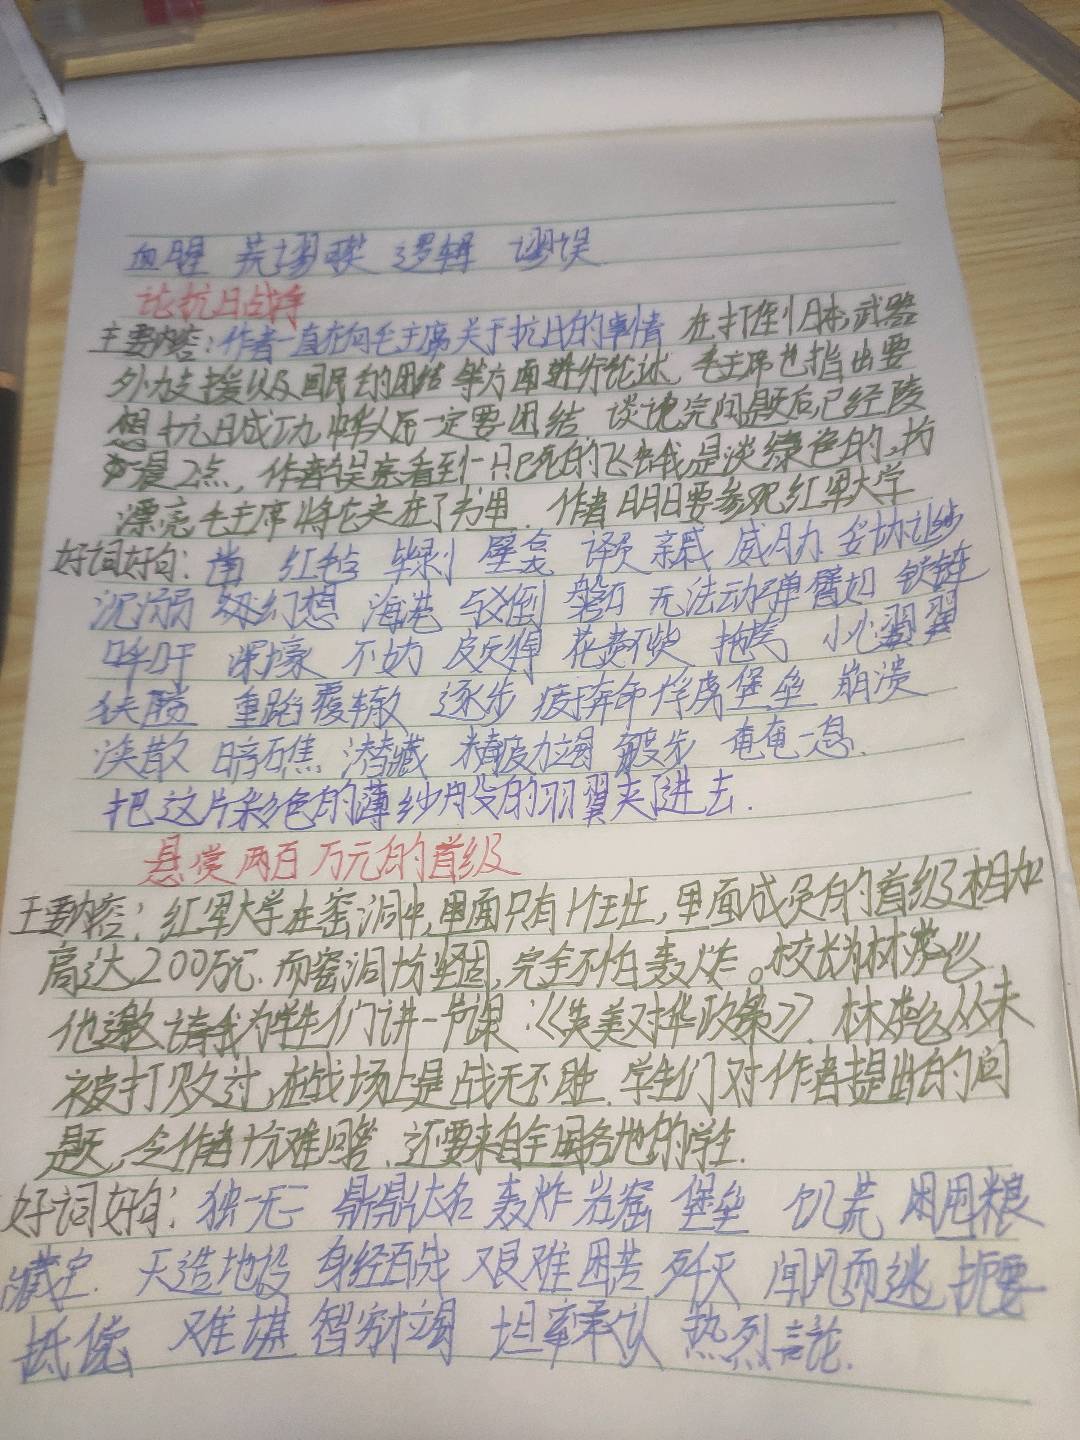 血腥 荒谬 逻辑 谬误
论抗日战争
主要内容：作者一直在问毛主席关于抗日的事情 在打至 日本，武器
外力支援以及国民的团结 等方面进行论述 毛主席也指出要
想抗日成功，中华人民一定要团结 谈论完问题后，已经凌
晨2点，作者 看到一只已死的飞蛾 是淡绿色的，均
漂亮 毛主席将它夹在了书里. 作者明日要参观红军大学
好词好句： 威胁 妥协让步
沉溺 幻想 海港 驳倒 磐石 无法动弹 譬如 铁链
呼吁 深壕 不妨 皮 花费 拖垮 小心翼翼
狭隘 重蹈覆辙 逐步 疲于奔命 俘虏 堡垒 崩溃
涣散 暗礁 潜藏 精疲力竭 跛步 奄奄一息.
把这片彩色的薄纱 的羽翼夹进去.
悬赏两百万元的首级
主要内容：红军大学在窑洞中，里面只有1个班，里面成员的首级相加
高达200万元. 而窑洞均坚固，完全不怕轰炸。校长为林彪
他邀请我为学生们讲一节课：《英美对华政策》. 林彪从未
被打败过，在战场上是战无不胜. 学生们对作者提出的问
题，令作者十分难回答. 还要来自全国各地的学生.
好词好句：独一无二 鼎鼎大名 轰炸 岩窟 堡垒 饥荒 粮
藏定. 天造地设 身经百战 艰难困苦 歼灭 闻风而逃 扼要
抵偿 难堪 智穷才竭 坦率承认 热烈言论.